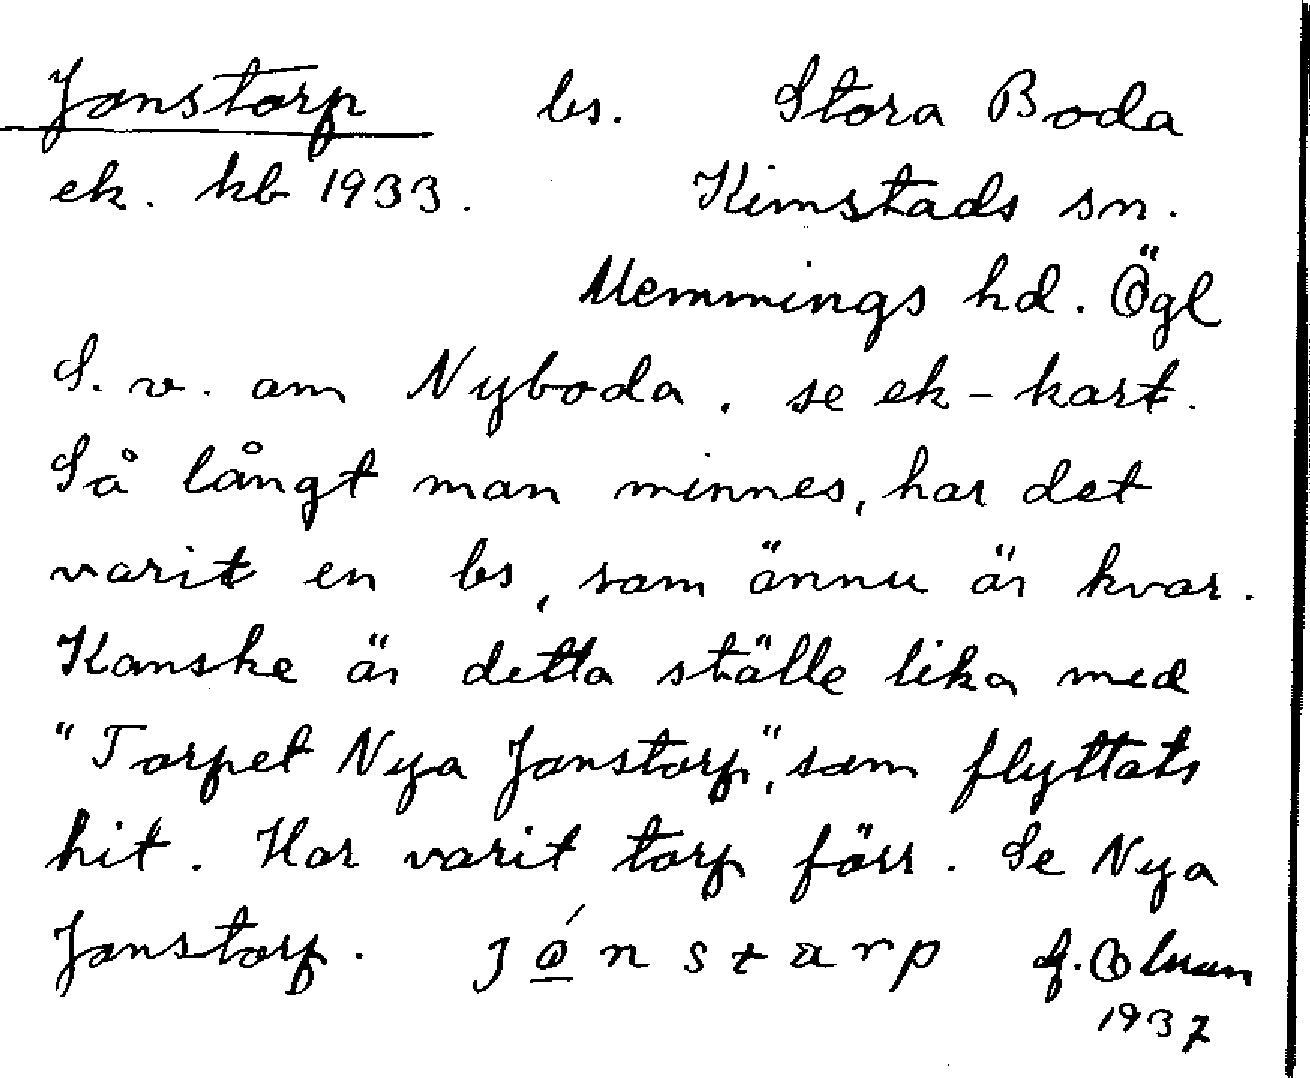 Jonstorp bs. Stora Boda
ek. kb 1933. Kimstads sn.
Memmings hd. Ögl
S. v. om Nyboda. se ek-kart.
Så långt man minnes, har det
varit en bs, som ännu är kvar.
Kanske är detta ställe lika med
"Torpet Nya Jonstorp", som flyttats
hit. Har varit torp förr. Se Nya
Jonstorp. j ó n s t a r p
1937